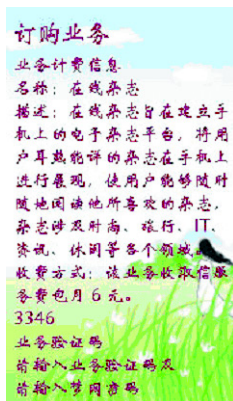 订购业务
业务计费信息
名称：在线杂志
描述：在线杂志旨在建立手
机上的电子杂志平台，将用
户耳熟能详的杂志在手机上
进行展现，使用户能够随时
随地阅读他所喜欢的杂志，
杂志涉及时尚、旅行、IT、
资讯、休闲等各个领域。
收费方式：该业务收取信息服
务费包月 6 元。
3346
业务验证码
请输入业务验证码及
请输入梦网密码